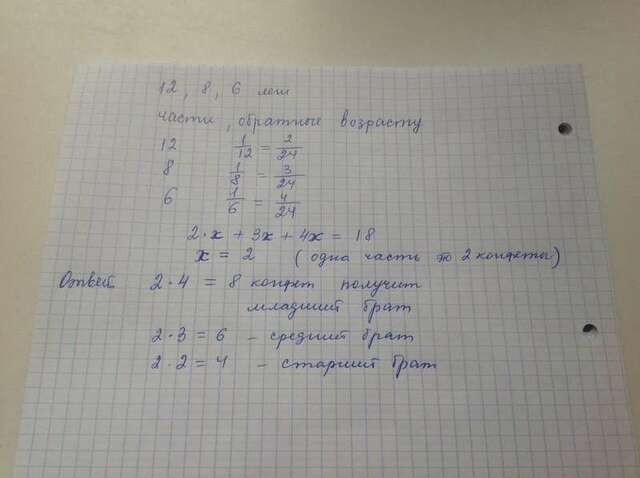 12, 8, 6 лет
части, обратные возрасту
12 1/12 = 2/24
8 1/8 = 3/24
6 1/6 = 4/24
2·x + 3x + 4x = 18
x = 2 (одна часть это 2 конфеты)
Ответ 2·4 = 8 конфет получит
младший брат
2·3 = 6 – средний брат
2·2 = 4 – старший брат